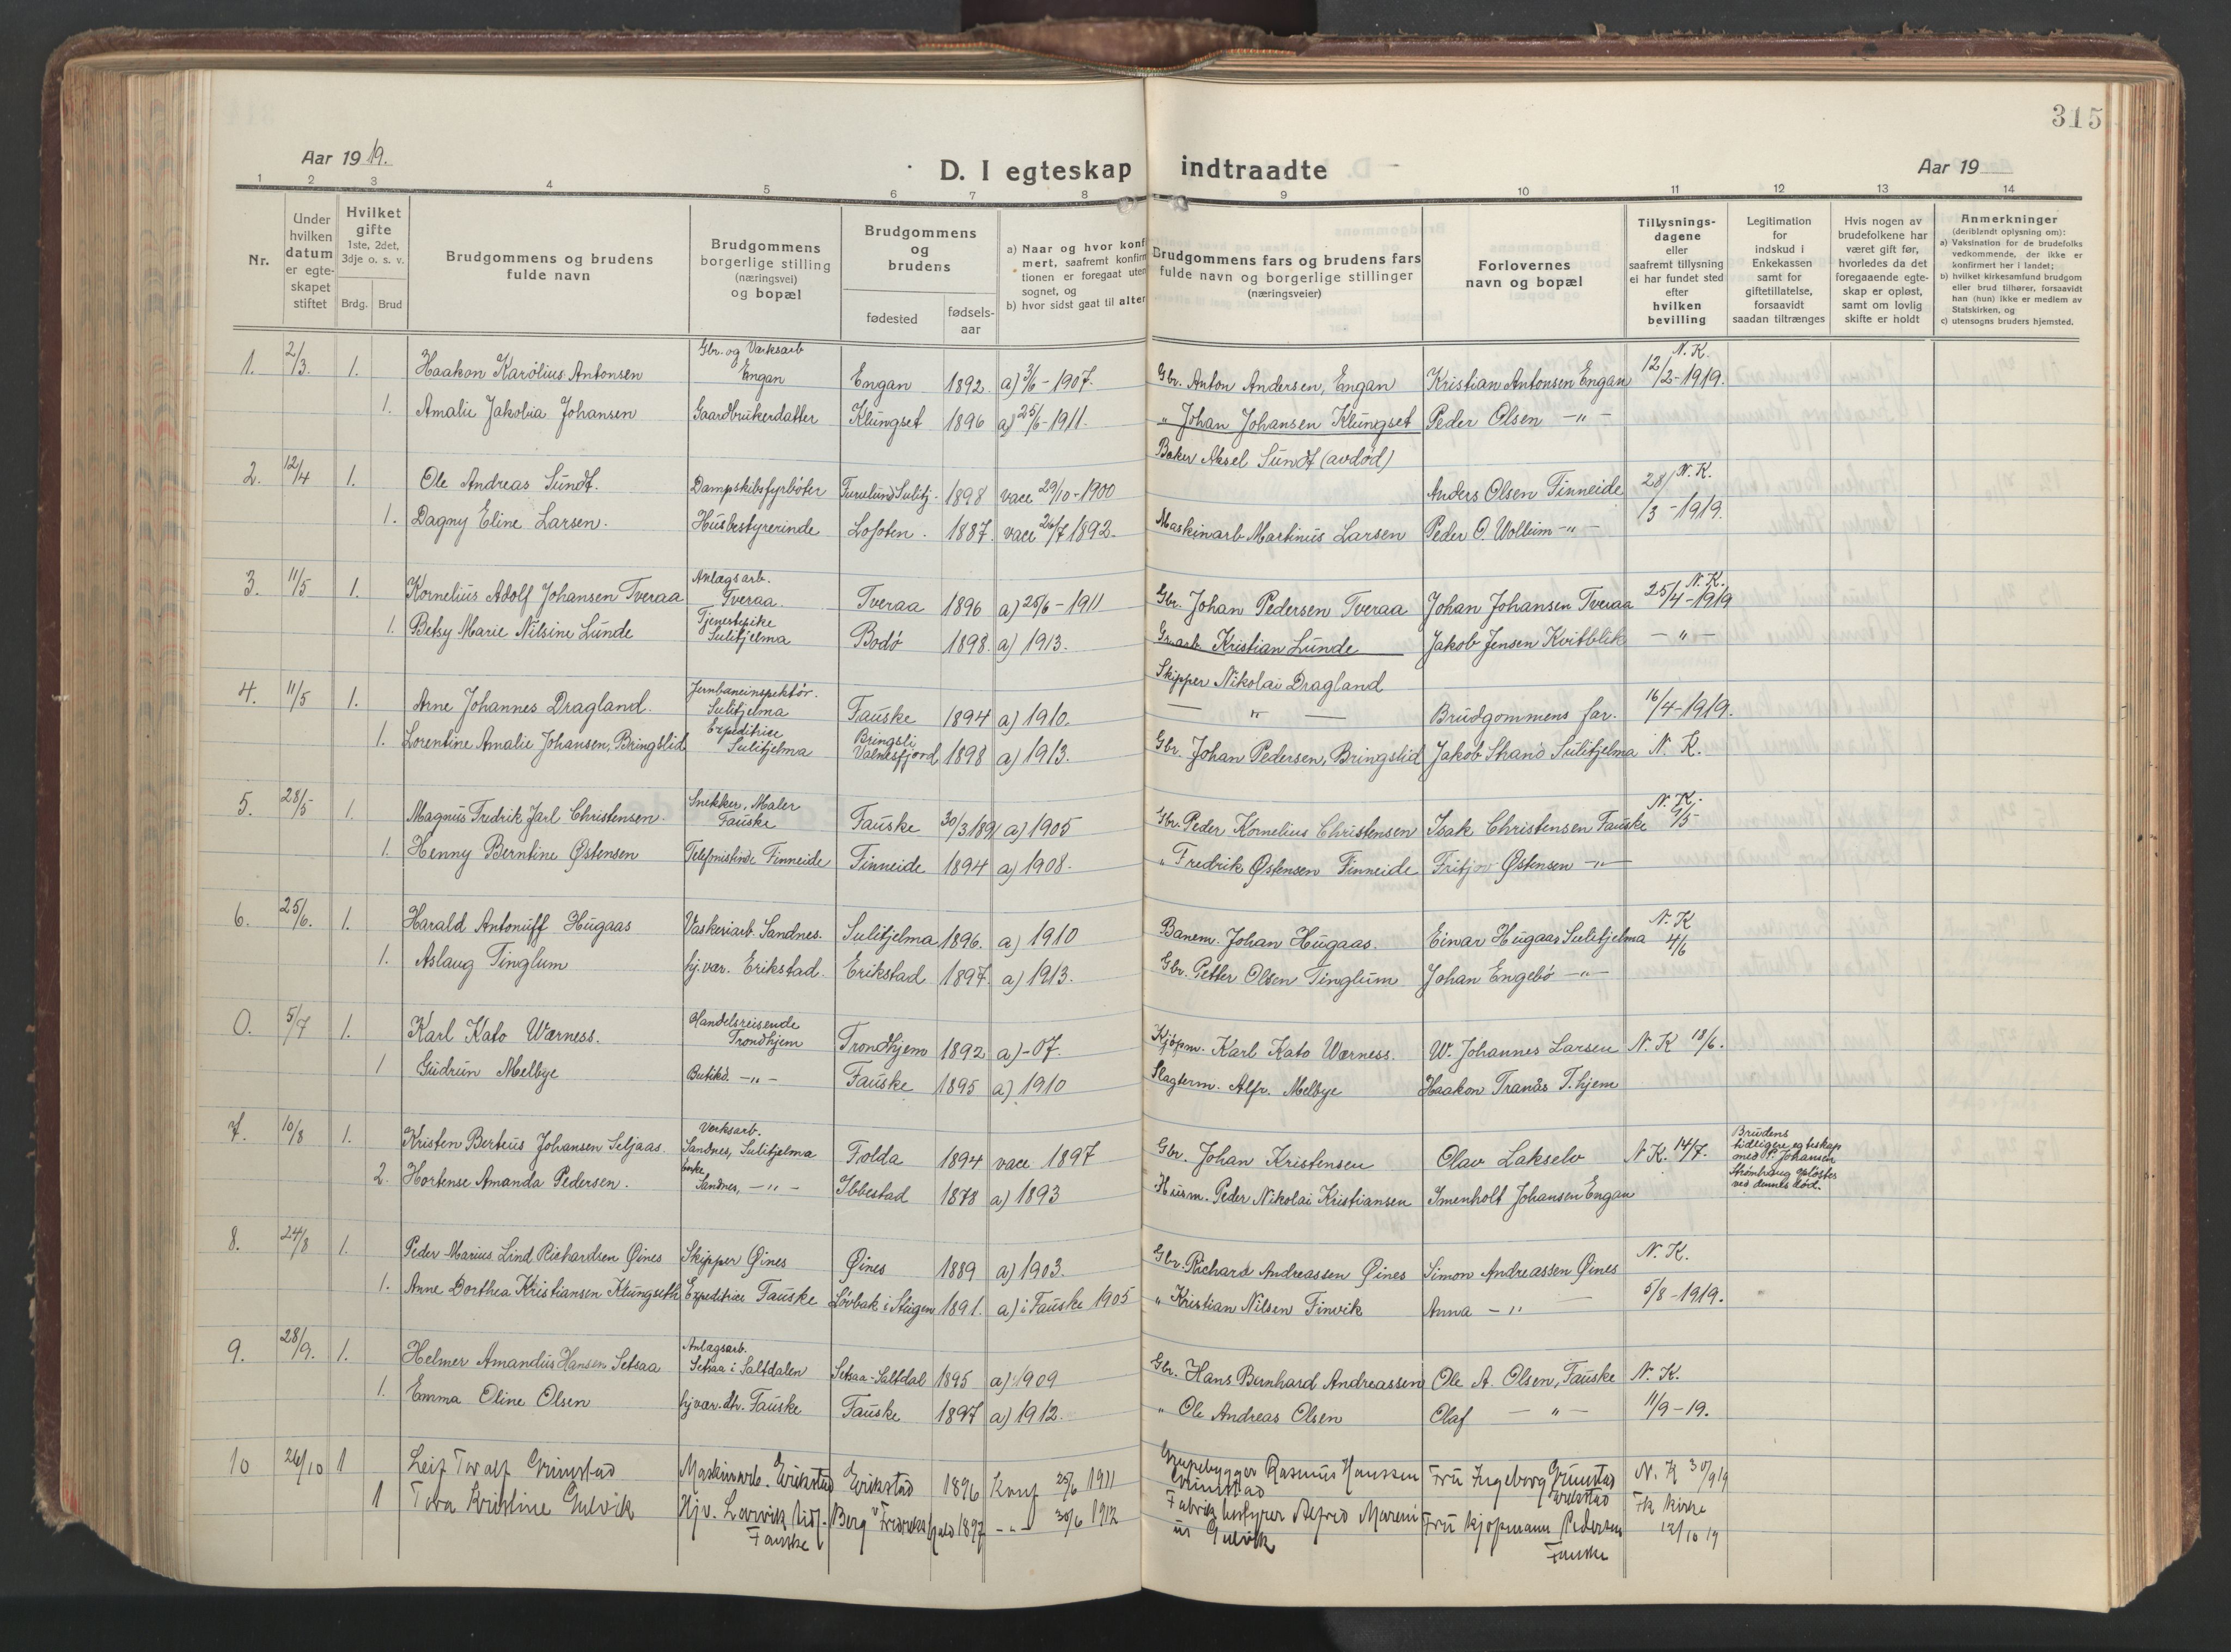 315
Aar 1919.
D. I egteskap indtraadte
Aar 19
1 2 3 4 5 6 7 8 9 10 11 12 13 14
Nr.
Under hvilken datum er egteskapet stiftet
Hvilket gifte 1ste, 2det, 3dje o. s. v.
Brdg. Brud
Brudgommens og brudens fulde navn
Brudgommens borgerlige stilling (næringsvei) og bopæl
Brudgommens og brudens
fødested
fødselsaar
a) Naar og hvor konf
mert, saafremt konfirm
tionen er foregaat uten
sognet, og
b) hvor sidst gaat til alter
Brudgommens fars og brudens fars fulde navn og borgerlige stillinger (næringsveier)
Forlovernes navn og bopæl
Tillysningsdagene eller saafremt tillysning ei har fundet sted efter hvilken bevilling
Legitimation for indskud i Enkekassen samt for giftetillatelse, forsaavidt saadan tiltrænges
Hvis nogen av brudefolkene har været gift før, hvorledes da det foregaaende egteskap er opløst, samt om lovlig skifte er holdt
Anmerkninger (deriblandt oplysning om):
a) Vaksination for de brudefolks vedkommende, der ikke er konfirmert her i landet;
b) hvilket kirkesamfund brudgom eller brud tilhører, forsaavidt han (hun) ikke er medlem av Statskirken, og
c) utensogns bruders hjemsted.
1. 2/3. 1. Haakon Karolius Antonsen Gbr. og Verksarb Engan Engan 1892. a) 3/6 - 1907. Gbr. Anton Andersen, Engan Kristian Antonsen Engan N. K. 12/2-1919.
1. Amalie Jakobia Johansen Gaardbrukerdatter Klungset 1896 a) 25/6-1911. " Johan Johansen Klungset Peder Olsen -"-
2. 12/4 1. Ole Andreas Sundt. Dampskibsfyrbøter Furulund Sulitj. 1898 vace 29/10-1900 Baker Aksel Sundt (avdød) Anders Olsen Finneide N. K. 28/3-1919.
1. Dagny Eline Larsen. Husbestyrerinde Lofoten. 1887. vace 26/7 1892. Maskinarb Martinus Larsen Peder O. Wollum -"-
3. 11/5 1. Kornelius Adolf Johansen Tveraa Anlægsarb. Tveraa. Tveraa 1896 a) 25/6-1911 Gbr. Johan Pedersen Tveraa Johan Johansen Tveraa N. K. 25/4-1919
1. Betsy Marie Nilsine Lunde Tjenestepike Sulitjelma Bodø 1898. a) 1913. Gruarb. Kristian Lunde Jakob Jensen Kvitblik -"-
4. 11/5 1. Arne Johannes Dragland. Jernbaneinspektør. Sulitjelma Fauske 1894 a) 1910. Skipper Nikolai Dragland Brudgommens far. 16/4-1919.
1. Lorentine Amalie Johansen, Bringslid Expeditrice Sulitjelma Bringsli Valnesfjord 1898 a) 1913. Gbr. Johan Pedersen, Bringslid Jakob Strand Sulitjelma N. K.
5. 28/5 1. Magnus Fredrik Jarl Christensen. Snekker, Maler Fauske Fauske 30/3 1891 a) 1905 Gbr. Peder Kornelius Christensen Isak Christensen Fauske N. K. 9/5-
1. Henny Berntine Østensen Telefonistinde Finneide Finneide 1894 a) 1908. " Fredrik Østensen Finneide Fritjov Østensen -"-
6. 25/6. 1. Harald Antonuff Hugaas Vaskeriarb. Sandnes. Sulitjelma 1896. a) 1910 Banem. Johan Hugaas. Einar Hugaas Sulitjelma N. K 4/6
1. Aslaug Tinglum hj. vær. Erikstad. Erikstad 1897. a) 1913. Gbr. Petter Olsen Tinglum Johan Engebø -"-
0. 5/7 1. Karl Kato Wærness. Handelsreisende Trondhjem Trondhjem 1892 a) -07. Kjøpm. Karl Kato Wærness. W. Johannes Larsen N. K 18/6.
1 Gudrun Melbye Butikd. -"- Fauske 1895 a) 1910 Slagterm. Alfr. Melbye Haakon Tranås T.hjem
7. 10/8 1. Kristen Berteus Johansen Seljaas. Verksarb. Sandnes, Sulitjelma Folda 1894 vace 1897 Gbr. Johan Kristensen Olav Lakselv N K. 14/7. Brudens tidligere egteskap med P. Johansen Strømhaug opløstes ved dennes død.
2. Hortense Amanda Pedersen. Enke, Sandnes, -"- Ibbestad 1878 a) 1893 Husm. Peder Nikolai Kristiansen Imenholt Johansen Engan
8. 24/8 1. Peder Marius Lind Richardsen Øines Skipper Øines Øines 1889 a) 1903. Gbr. Richard Andreassen Øines Simon Andreassen Øines N. K.
1. Anne Dorthea Kristiansen Klungseth Expeditrice Fauske Løvbak i Stigen 1891. a) i Fauske 1905 " Kristian Nilsen Finvik Anna -"- 5/8-1919.
9. 28/9. 1. Helmer Amandus Hansen Setsaa Anlægsarb. Setsaa i Saltdalen Setsaa-Saltdal 1895 a) 1909 Gbr. Hans Bernhard Andreassen Ole A. Olsen, Fauske N. K.
1. Emma Oline Olsen hjvær. dtr. Fauske Fauske 1897 a) 1912. " Ole Andreas Olsen Olaf -"- 11/9-19.
10 26/10 1 Leif Toralf Grimstad Maskinarb. Erikstad Erikstad 1896 Konf 25/6 1911 Rasmus Hanssen Grimstad Fru Ingeborg Grimstad Erikstad N. K 30/9 19
1 Tora Kristine Gulvik Hjv. Fauske Berg v Fredrikshald 1897 -"- 30/6 1912 Fabrikbestyrer Alfred Gulvik Fru kjøpmann Pedersen Fauske Fk Kirke 12/10 19